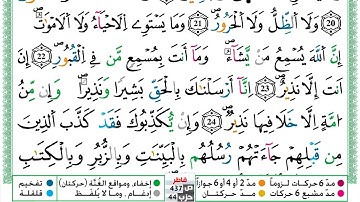 20 وَلَا ٱلظِّلُّ وَلَا ٱلْحَرُورُ 21 وَمَا يَسْتَوِى ٱلْأَحْيَآءُ وَلَا ٱلْأَمْوَٰتُ ۚ
إِنَّ ٱللَّهَ يُسْمِعُ مَن يَشَآءُ ۖ وَمَآ أَنتَ بِمُسْمِعٍ مَّن فِى ٱلْقُبُورِ 22 إِنْ
أَنتَ إِلَّا نَذِيرٌ 23 إِنَّآ أَرْسَلْنَٰكَ بِٱلْحَقِّ بَشِيرًا وَنَذِيرًا ۚ وَإِن مِّنْ
أُمَّةٍ إِلَّا خَلَا فِيهَا نَذِيرٌ 24 وَإِن يُكَذِّبُوكَ فَقَدْ كَذَّبَ ٱلَّذِينَ
مِن قَبْلِهِمْ جَآءَتْهُمْ رُسُلُهُم بِٱلْبَيِّنَٰتِ وَبِٱلزُّبُرِ وَبِٱلْكِتَٰبِ
مدّ 6 حركات لزوماً مدّ 2 أو 4 أو 6 جوازاً فاطر ص 437 حزب 44 إخفاء، ومواقع الغُنَّة (حركتان) تفخيم
مدّ مشبع 6 حركات مدّ حركتان إدغام، وما لا يُلفَظ قلقلة